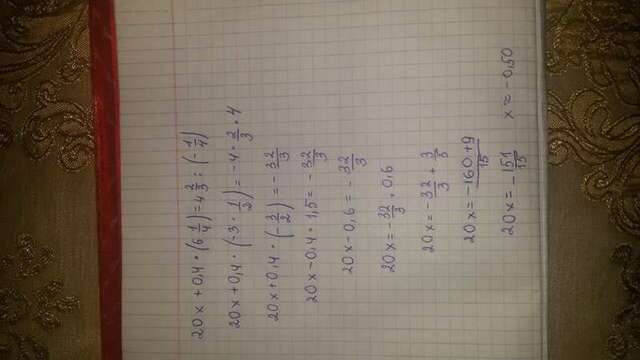 20x+0,4·(6 1/4)=4 2/3:(-1/4)
20x+0,4·(-3·1/2)=-4·2/3·4
20x+0,4·(-3/2)=-32/3
20x-0,4·1,5=-32/3
20x-0,6=-32/3
20x=-32/3+0,6
20x=-32/3+3/5
20x=-160+9/15
20x=-151/15 x≈-0,50